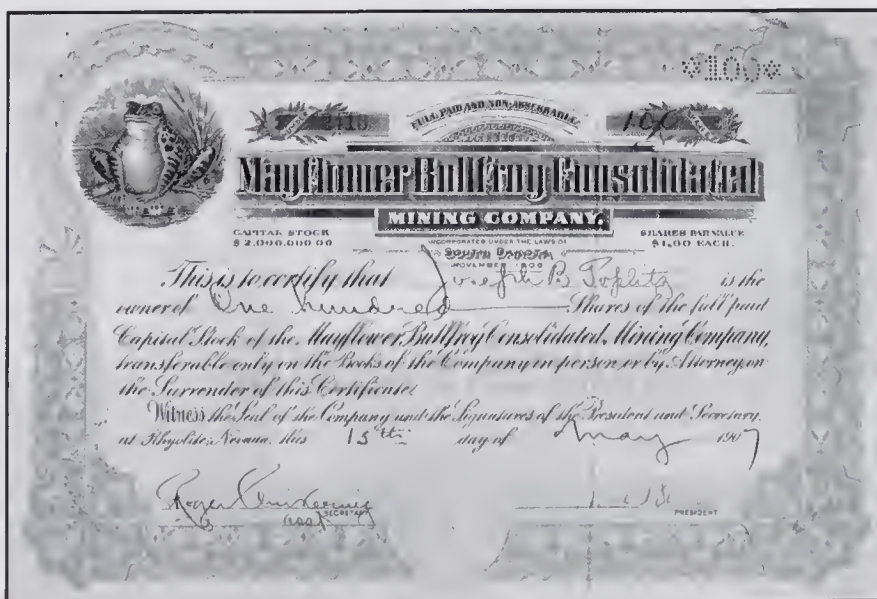 *100*
NUMBER
FULL PAID AND NON-ASSESSABLE
100
SHARES
Mayflower Bullfrog Consolidated
MINING COMPANY.
CAPITAL STOCK
$2,000,000.00
INCORPORATED UNDER THE LAWS OF
SOUTH DAKOTA
NOVEMBER
SHARES PAR VALUE
$1,00 EACH.
This is to certify that Joseph B. Toplitz is the
owner of One hundred Shares of the full paid
Capital Stock of the Mayflower Bullfrog Consolidated Mining Company,
transferable only on the Books of the Company in person or by Attorney on
the Surrender of this Certificate:
Witness the Seal of the Company and the Signatures of the President and Secretary
at Rhyolite, Nevada, this 15th day of May 1907
Roger
SECRETARY
PRESIDENT